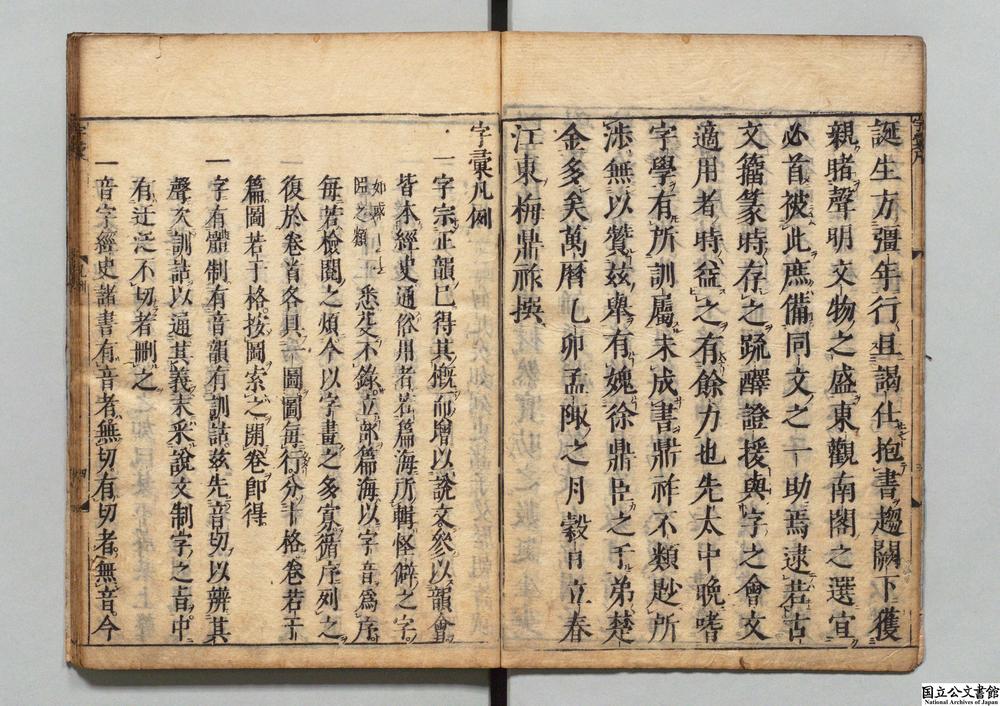 誕生方彊年行且謁仕抱書趨闕下獲
親睹聲明文物之盛東觀南閣之選宜
必首被此庶備同文之一助焉逮若古
文籀篆時存之疏釋證援與字之會文
適用者時益之有餘力也先太中晚嗜
字學有所訓屬未成書鼎祚不類尟所
渉無以贊玆擧有媿徐鼎臣之于弟楚
金多矣萬曆乙卯孟陬之月穀日立春
江東梅鼎祚撰
字彙凡例
一字宗正韻已得其槪而增以說文參以韻會
皆本經史通俗用者若篇海所輯怪僻之字
如 之類悉芟不錄立部篇海以字音爲序
每若檢閱之煩今以字畫之多寡循序列之
復於卷首各具一圖圖每行分十格卷若干
篇圖若干格按圖索之開卷卽得
一字有體制有音韻有訓詁玆先音切以辨其
聲次訓詁以通其義末采說文制字之㫖中
有迂泛不切者刪之
一音字經史諸書有音者無切有切者無音今
字彙序
字彙
凡例
四
国立公文書館
National Archives of Japan